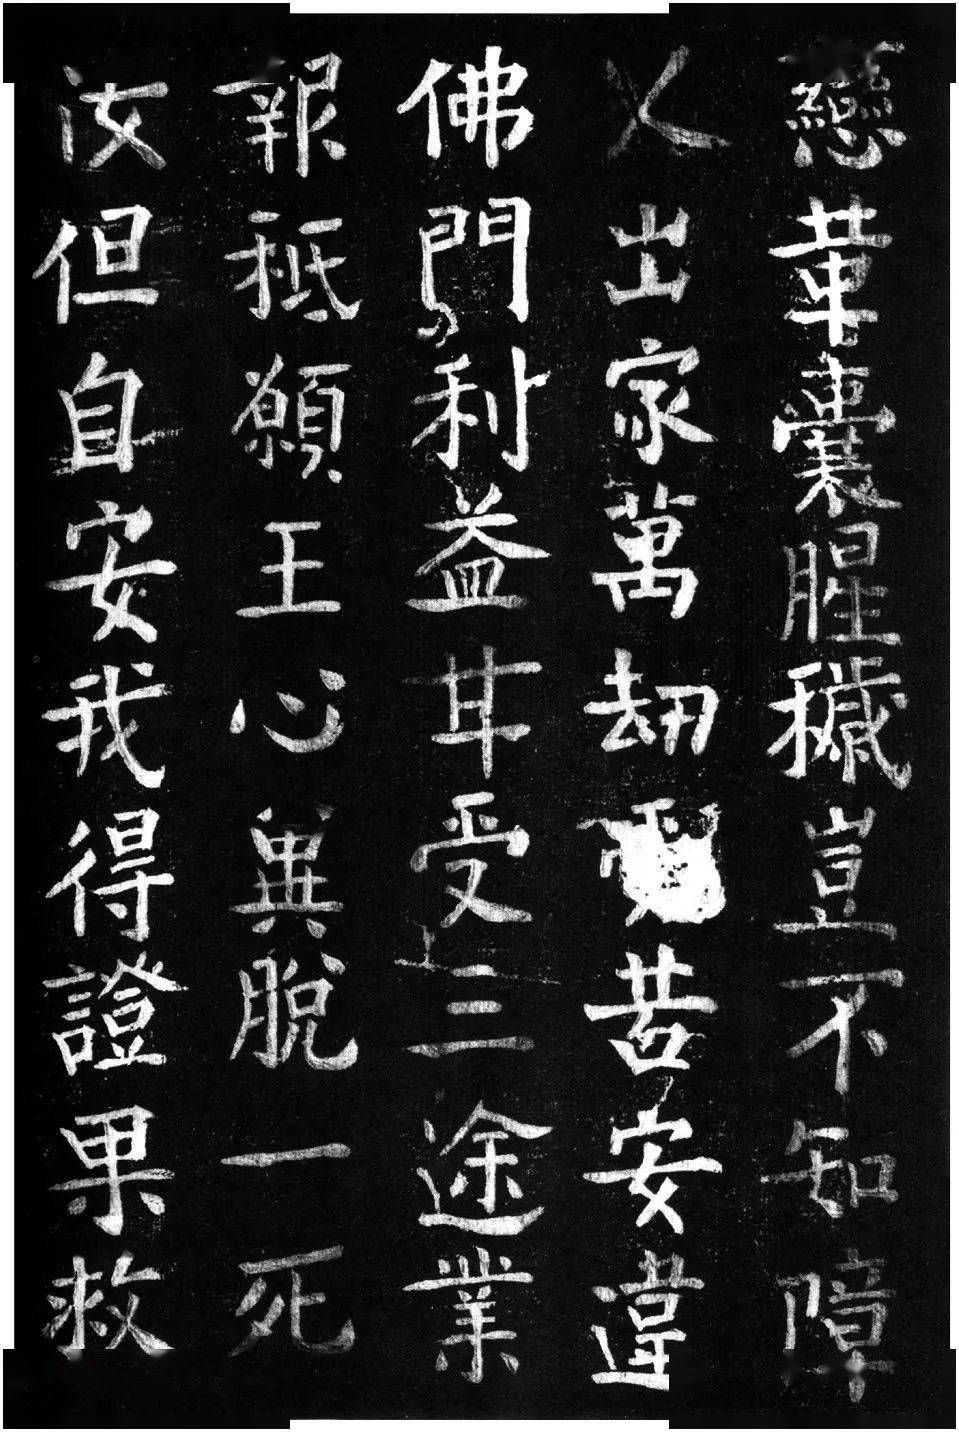 戀革囊腥穢豈不知障
人出家萬劫苦安違
佛門利益甘受三途業
報秪願王心兾脫一死
汝但自安我得證果救